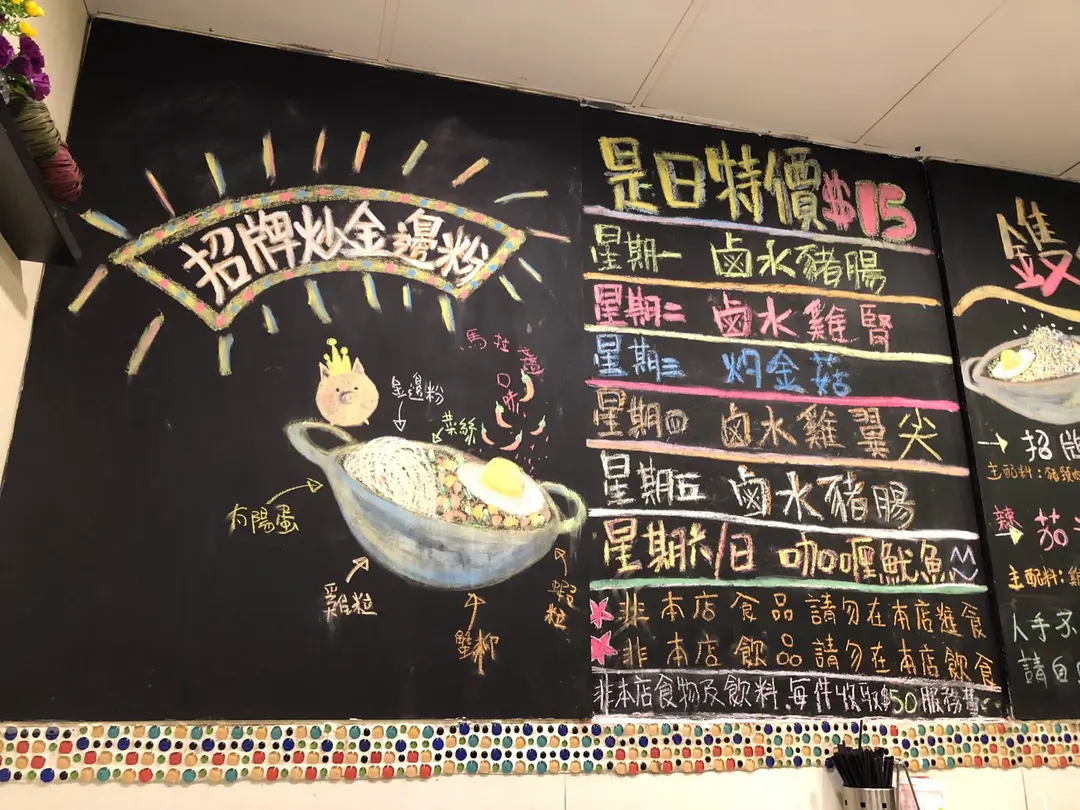 招牌炒金邊粉
馬拉盞
口味
金邊粉
菜絲
太陽蛋
雞粒
蟹柳
蝦粒
是日特價$15
星期一 鹵水豬腸
星期二 鹵水雞腎
星期三 灼金菇
星期四 鹵水雞翼尖
星期五 鹵水豬腸
星期六/日 咖喱魷魚
非本店食品請勿在本店進食
非本店飲品請勿在本店飲食
非本店食物及飲料每件收取$50服務費
招牌
主配料:
辣
茄
主配料:雞
人手不
請自